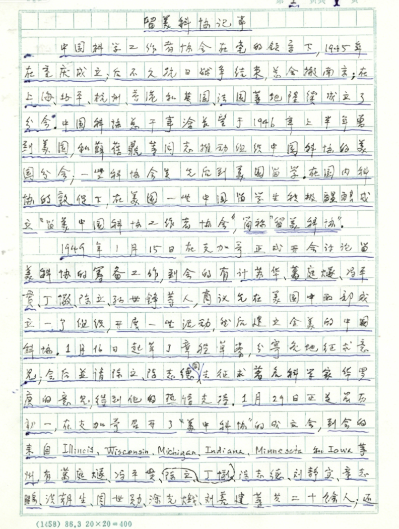 留美科协记事
中国科学工作者协会在党的领导下,1945年
在重庆成立,后不久抗日战争结束,总会搬南京,在
上海、北平、杭州、香港和英国、法国等地陆续成立了
分会。中国科协总干事涂长望于1946年上半年要
到美国,和薛葆鼎等同志推动组织中国科协的美
国分会,一些科协会员先后到美国留学。在国内科
协的敦促下,在美国一些中国留学生积极酝酿成
立"留美中国科协工作者协会",简称"留美科协"。
1949年1月15日在支加哥正式开会讨论留
美科协的筹备工作,到会的有计苏华、葛庭燧、冯平
贯、丁儆、陈立、孙世铮等人,商议先在美国中西部成
立一个组织,开展一些活动然后建立全美的中国
科协。1月16日起草了章程草案,分寄各地征求意
见,会后并请陈立、陈志德
度的意见,得到他的热情支持。1月29日正式
在支加哥召开了"美中科协"的成立会,到会的
来自 Illinois, Wisconsin, Michigan, Indiana, Minnesota 和 Iowa 等
州有葛庭燧、冯平贯、陈立、丁儆、
等二十余人,还
(1458) 86.3 20×20=400